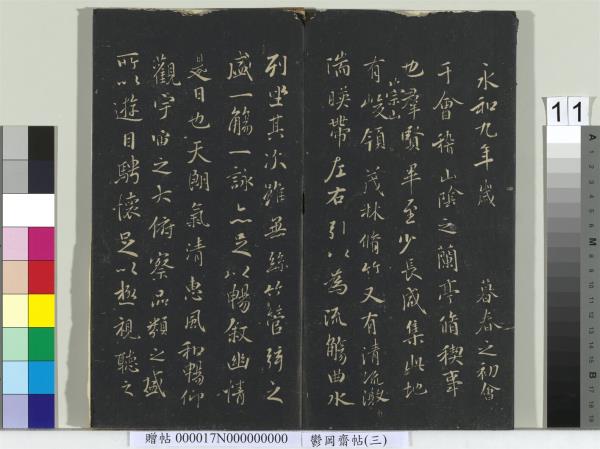 永和九年歲 暮春之初會
于會稽山陰之蘭亭脩稧事
也羣賢畢至少長咸集此地
有崇山峻領茂林脩竹又有清流激
湍暎帶左右引以為流觴曲水
列坐其次雖無絲竹管弦之
盛一觴一詠亦足以暢叙幽情
是日也天朗氣清惠風和暢仰
觀宇宙之大俯察品類之盛
所以遊目騁懷足以極視聽之
贈帖 000017N000000000 鬱岡齋帖(三)
11